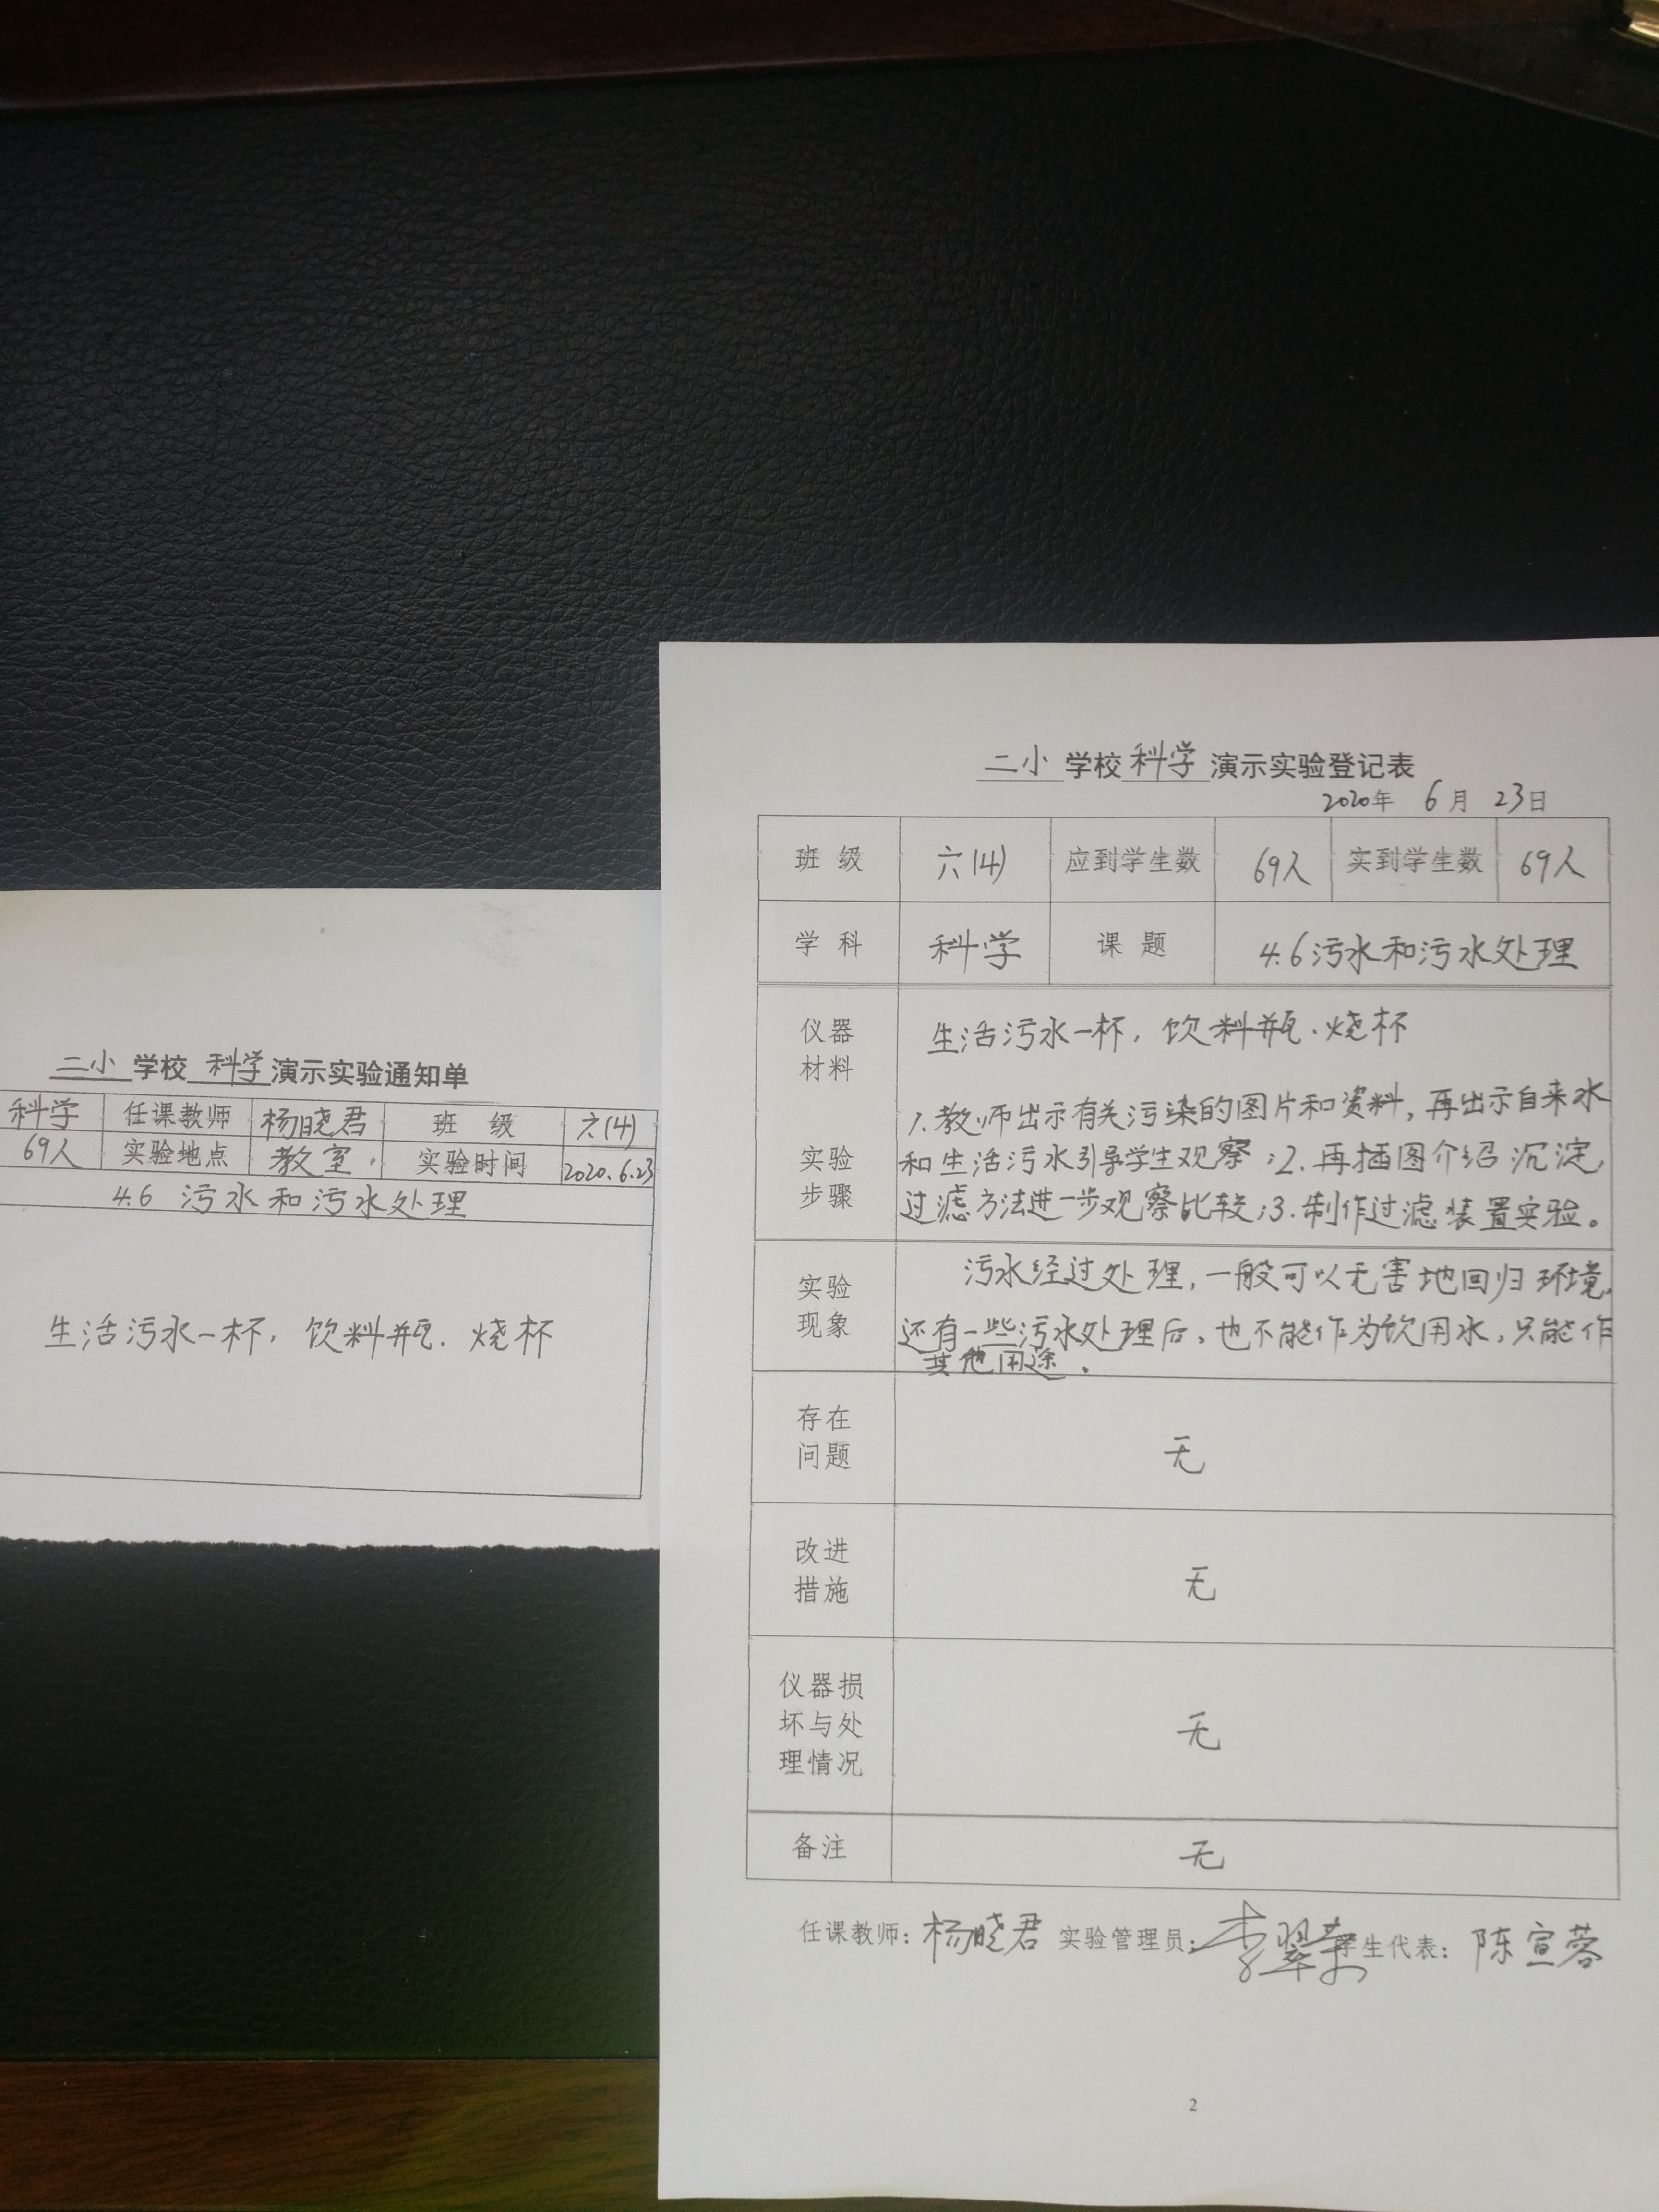 二小 学校 科学 演示实验通知单
科学 任课教师 杨晓君 班 级 六(4)
69人 实验地点 教室. 实验时间 2020.6.23
4.6 污水和污水处理
生活污水一杯, 饮料瓶. 烧杯
二小 学校 科学 演示实验登记表
2020年 6月 23日
班 级 六(4) 应到学生数 69人 实到学生数 69人
学 科 科学 课 题 4.6污水和污水处理
仪器
材料
生活污水一杯, 饮料瓶. 烧杯
实验
步骤
1.教师出示有关污染的图片和资料,再出示自来水
和生活污水引导学生观察;2.再插图介绍沉淀,
过滤方法进一步观察比较;3.制作过滤装置实验。
实验
现象
污水经过处理,一般可以无害地回归环境.
还有一些污水处理后,也不能作为饮用水,只能作
其他用途.
存在
问题
无
改进
措施
无
仪器损
坏与处
理情况
无
备注 无
任课教师: 杨晓君 实验管理员: 李翠 学生代表: 陈宣蓉
2